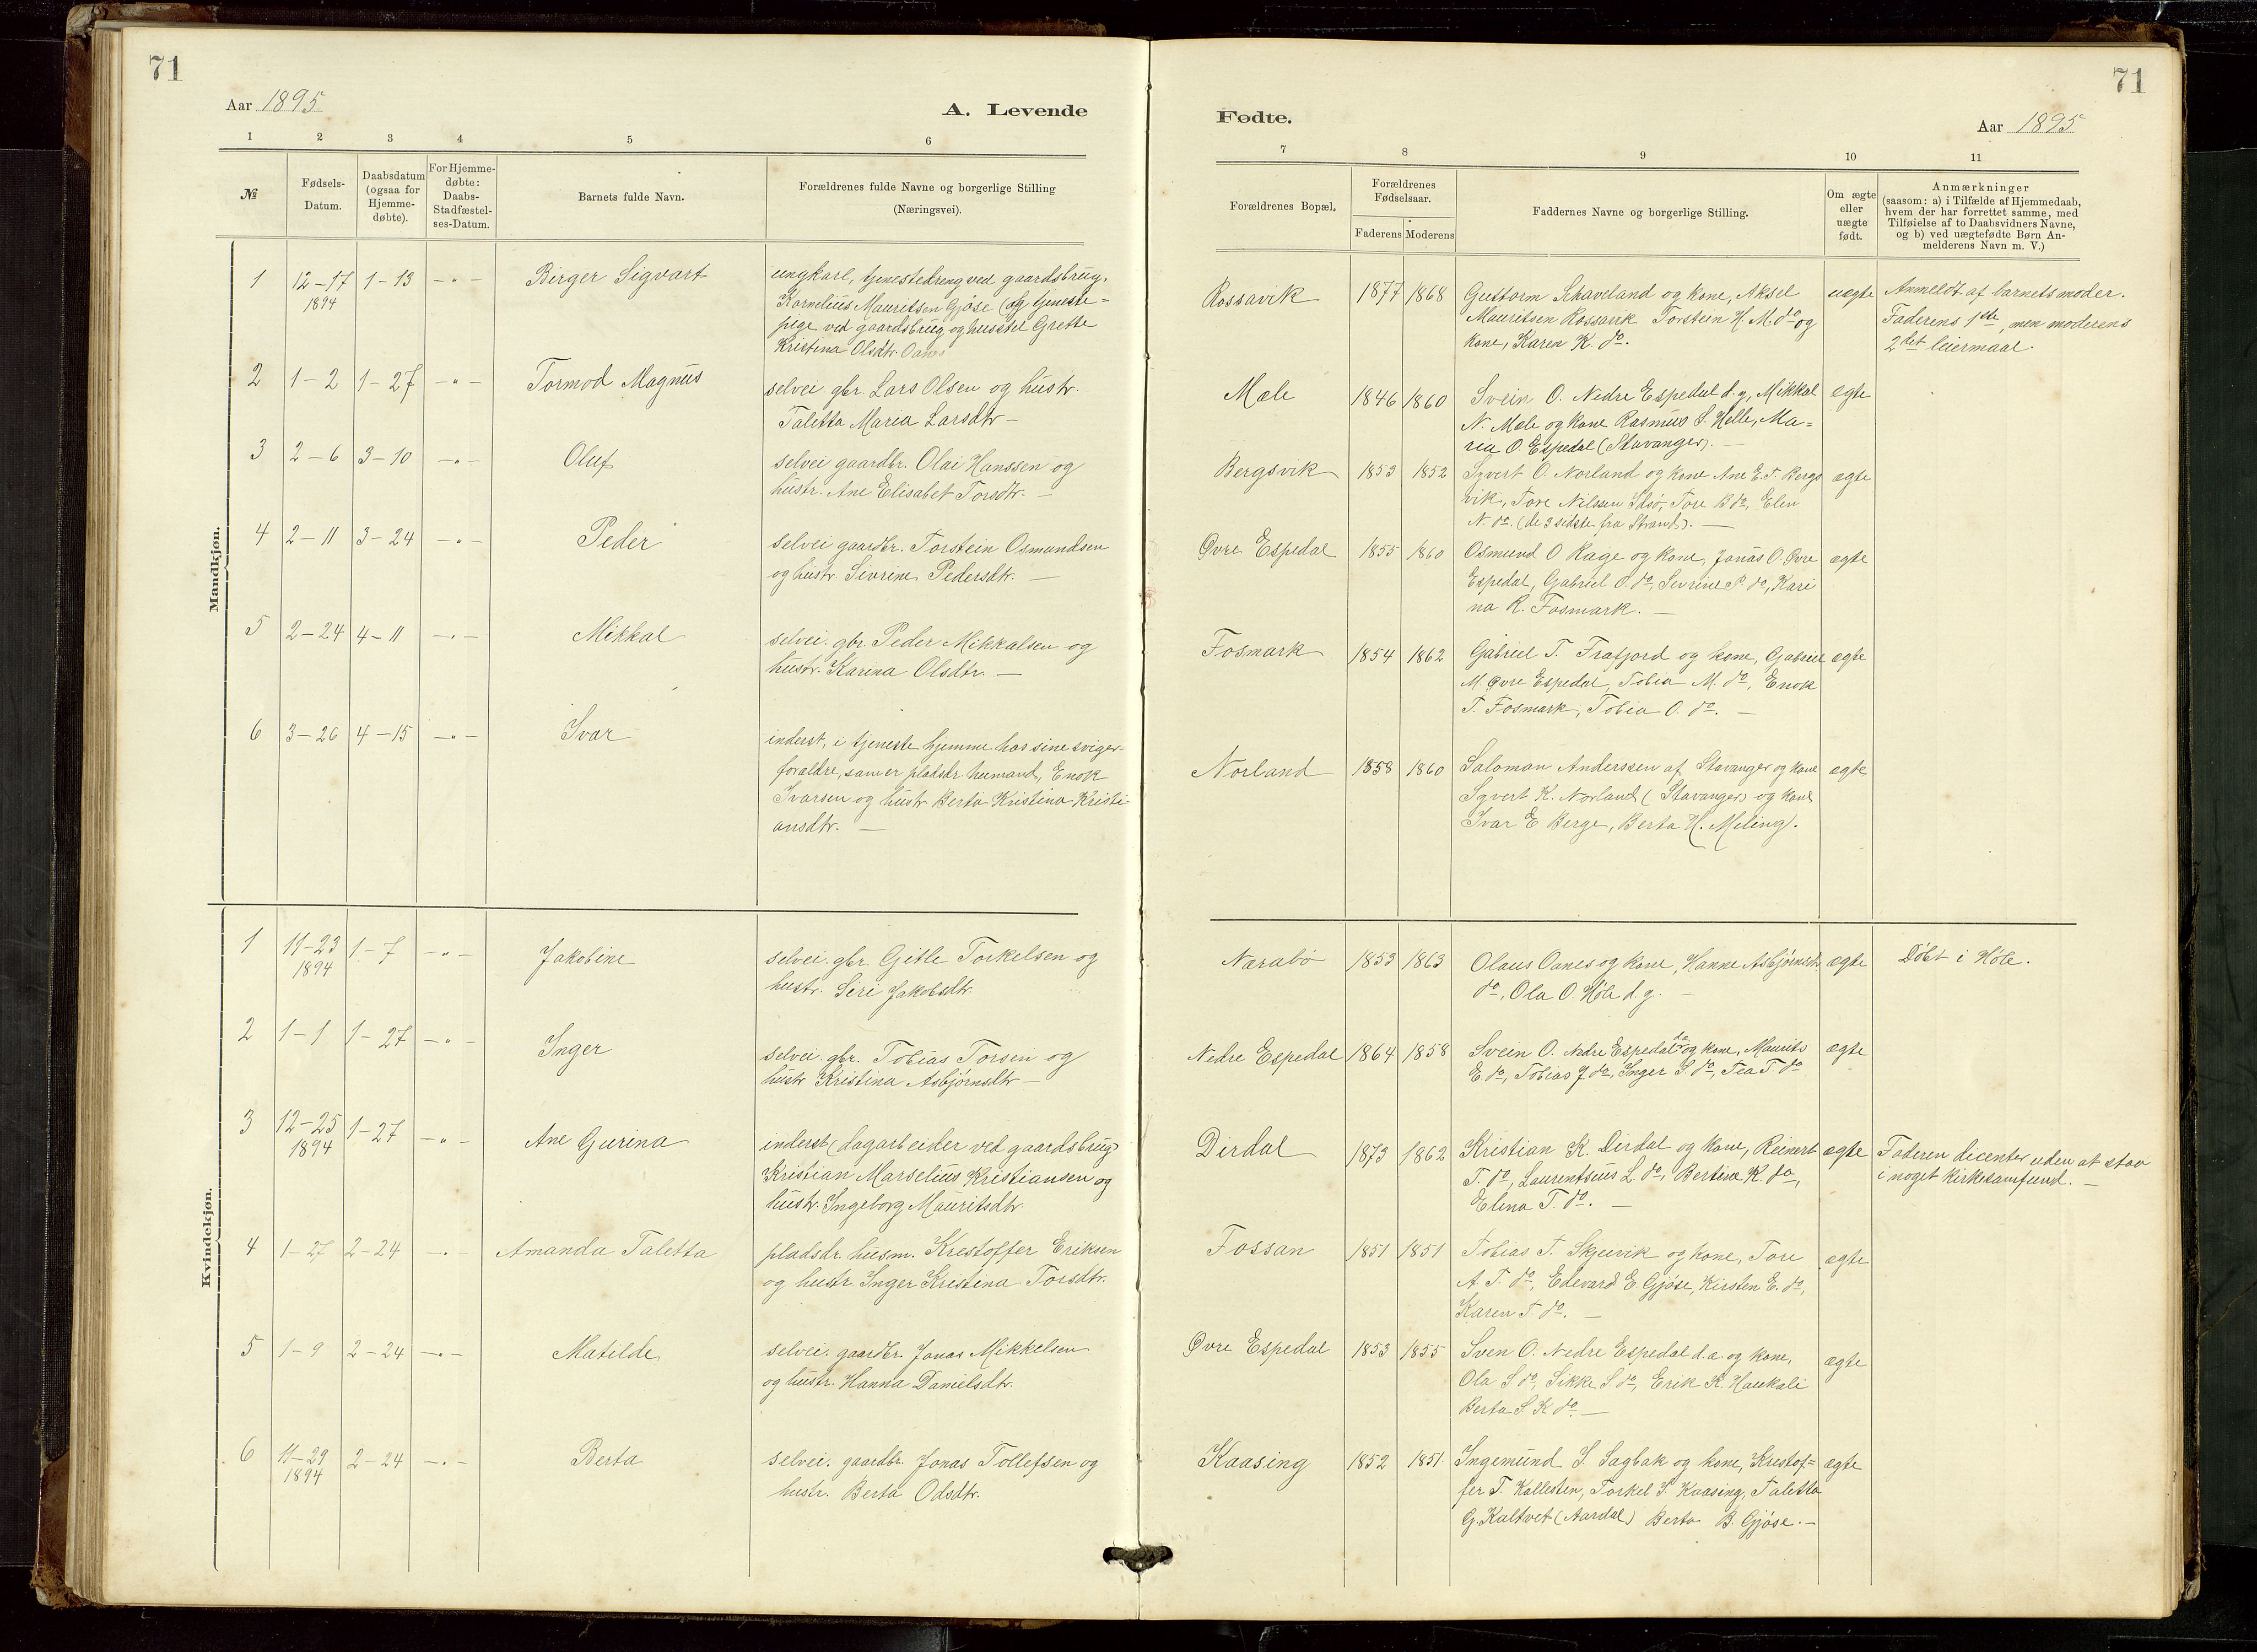 71
Aar 1895.
A. Levende
1 2 3 4 5 6
№
Fødsels-
Datum.
Daabsdatum
(ogsaa for
Hjemme-
døbte).
For Hjemme-
døbte:
Daabs-
Stadfæstel-
ses-Datum.
Barnets fulde Navn.
Forældrenes fulde Navne og borgerlige Stilling
(Næringsvei).
Mandkjøn.
1 12-17 1-13 -"- Birger Sigvart
1894
ungkarl, tjenestedreng ved gaardsbrug,
Kornelius Mauritsen Gjøse (og tjeneste=
pige ved gaardsbrug og husstel Grette
Kristina Olsdtr. Oanes
2 1-2 1-27 -"- Tormod Magnus
selvei. gbr. Lars Olsen og hustr.
Taletta Maria Larsdtr -
3 2-6 3-10 -"- Oluf
selvei gaardbr. Olai Hanssen og
hustr. Ane Elisabet Torsdtr. -
4 2-11 3-24 -"- Peder
selvei gaardbr. Torstein Osmundsen
og hustr. Sivrine Pedersdtr. -
5 2-24 4-11 -"- Mikkal
selvei. gbr. Peder Mikkalsen og
hustr. Karina Olsdtr. -
6 3-26 4-15 -"- Ivar
inderst, i tjeneste hjemme hos sine sviger-
foraldre, som er pladsdr husmand, Enok
Ivarsen og hustr Berta Kristina Kristi-
ansdtr. -
Kvindekjøn.
1 11-23 1-7 -"- Jakobine
1894
selvei. gbr. Gitle Torkelsen og
hustr. Siri Jakobsdtr.
2 1-1 1-27 -"- Inger
selvei. gbr. Tobias Torsen og
hustr Kristina Asbjørnsdtr -
3 12-25 1-27 -"- Ane Gurina
1894
inderst (dagarbeider ved gaardsbrug)
Kristian Marselius Kristiansen og
hustr. Ingeborg Mauritsdtr.
4 1-27 2-24 -"- Amanda Taletta
pladsdr. husm. Krestoffer Eriksen
og hustr Inger Kristina Torsdtr.
5 1-9 2-24 -"- Matilde
selvei. gaardbr. Jonas Mikkelsen
og hustr. Hanna Danielsdtr.
6 11-29 2-24 -"- Berta
1894
selvei. gaardbr. Jonas Tollefsen og
hustr. Berta Odsdtr.
71
Fødte.
Aar 1895
7 8 9 10 11
Forældrenes Bopæl.
Forældrenes
Fødselsaar.
Faderens Moderens
Faddernes Navne og borgerlige Stilling.
Om ægte
eller
uægte
født.
Anmærkninger
(saasom: a) i Tilfælde af Hjemmedaab,
hvem der har forrettet samme, med
Tilføielse af to Daabsvidners Navne,
og b) ved uægtefødte Børn An-
melderens Navn m. V.)
Rossavik 1877 1868 Guttorm Schaveland og kone, Aksel
Mauritsen Rossavik Torstein H. M. do og
kone, Karen K. do.
uegte
Anmeldt af barnets moder.
Faderens 1ste, men moderens
2det leiermaal.
Mæle 1846 1860 Svein O. Nedre Espedal d. y, Mikkal
N. Mæle og kone Rasmus S. Helle, Ma=
ria O. Espedal (Stavanger). -
ægte
Bergsvik 1853 1852 Syvert O. Norland og kone Ane E. T. Bergs
vik, Tore Nilssen Idsø, Tore B do, Elen
N. do. (de 3 sidste fra Strand). -
ægte
Øvre Espedal 1855 1860 Osmund O Rage og kone, Jonas O. Øvre
Espedal, Gabriel O. do, Sivrine P. do, Kari
na R. Fosmark. -
ægte
Fosmark 1854 1862 Gabriel T. Frafjord og kone, Gabriel
M. Øvre Espedal, Tobia M. do, Enok
T. Fosmark, Tobia O. do. -
ægte
Norland 1858 1860 Saloman Anderssen af Stavanger og kone
Syvert K. Norland (Stavanger) og kone
Ivar E Berge, Berta H. Meling).
ægte
Narabø 1853 1863 Olaus Oanes og kone, Hanne Asbjørnsdtr
do, Ola O. Høle d. y. -
ægte
Døbt i Høle.
Nedre Espedal 1864 1858 Svein O. Nedre Espedal d. a. og kone, Maurits
E. do, Tobias J. do, Inger S. do, Tea T. do
ægte
Dirdal 1873 1862 Kristian K. Dirdal og kone, Reinert
T. do, Laurentsius L. do, Bertine K. do,
Elina T. do. -
ægte
Faderen dicenter uden at staa
i noget kirkesamfund. -
Fossan 1851 1851 Tobias T. Skjeevik og kone, Tore
A. T. do, Edevard E Gjøse, Kirsten E. do,
Karen T. do. -
ægte
Øvre Espedal 1853 1855 Sven O. Nedre Espedal d. a. og kone,
Ola S do, Sikke S do, Erik K. Haukali
Berta S K do. -
ægte
Kaasing 1852 1851. Ingemund S. Sagbak og kone, Krestof=
fer T. Kallesten, Torkel S. Kaasing, Taletta
G. Kaltvet (Aardal) Berta B. Gjøse. -
ægte